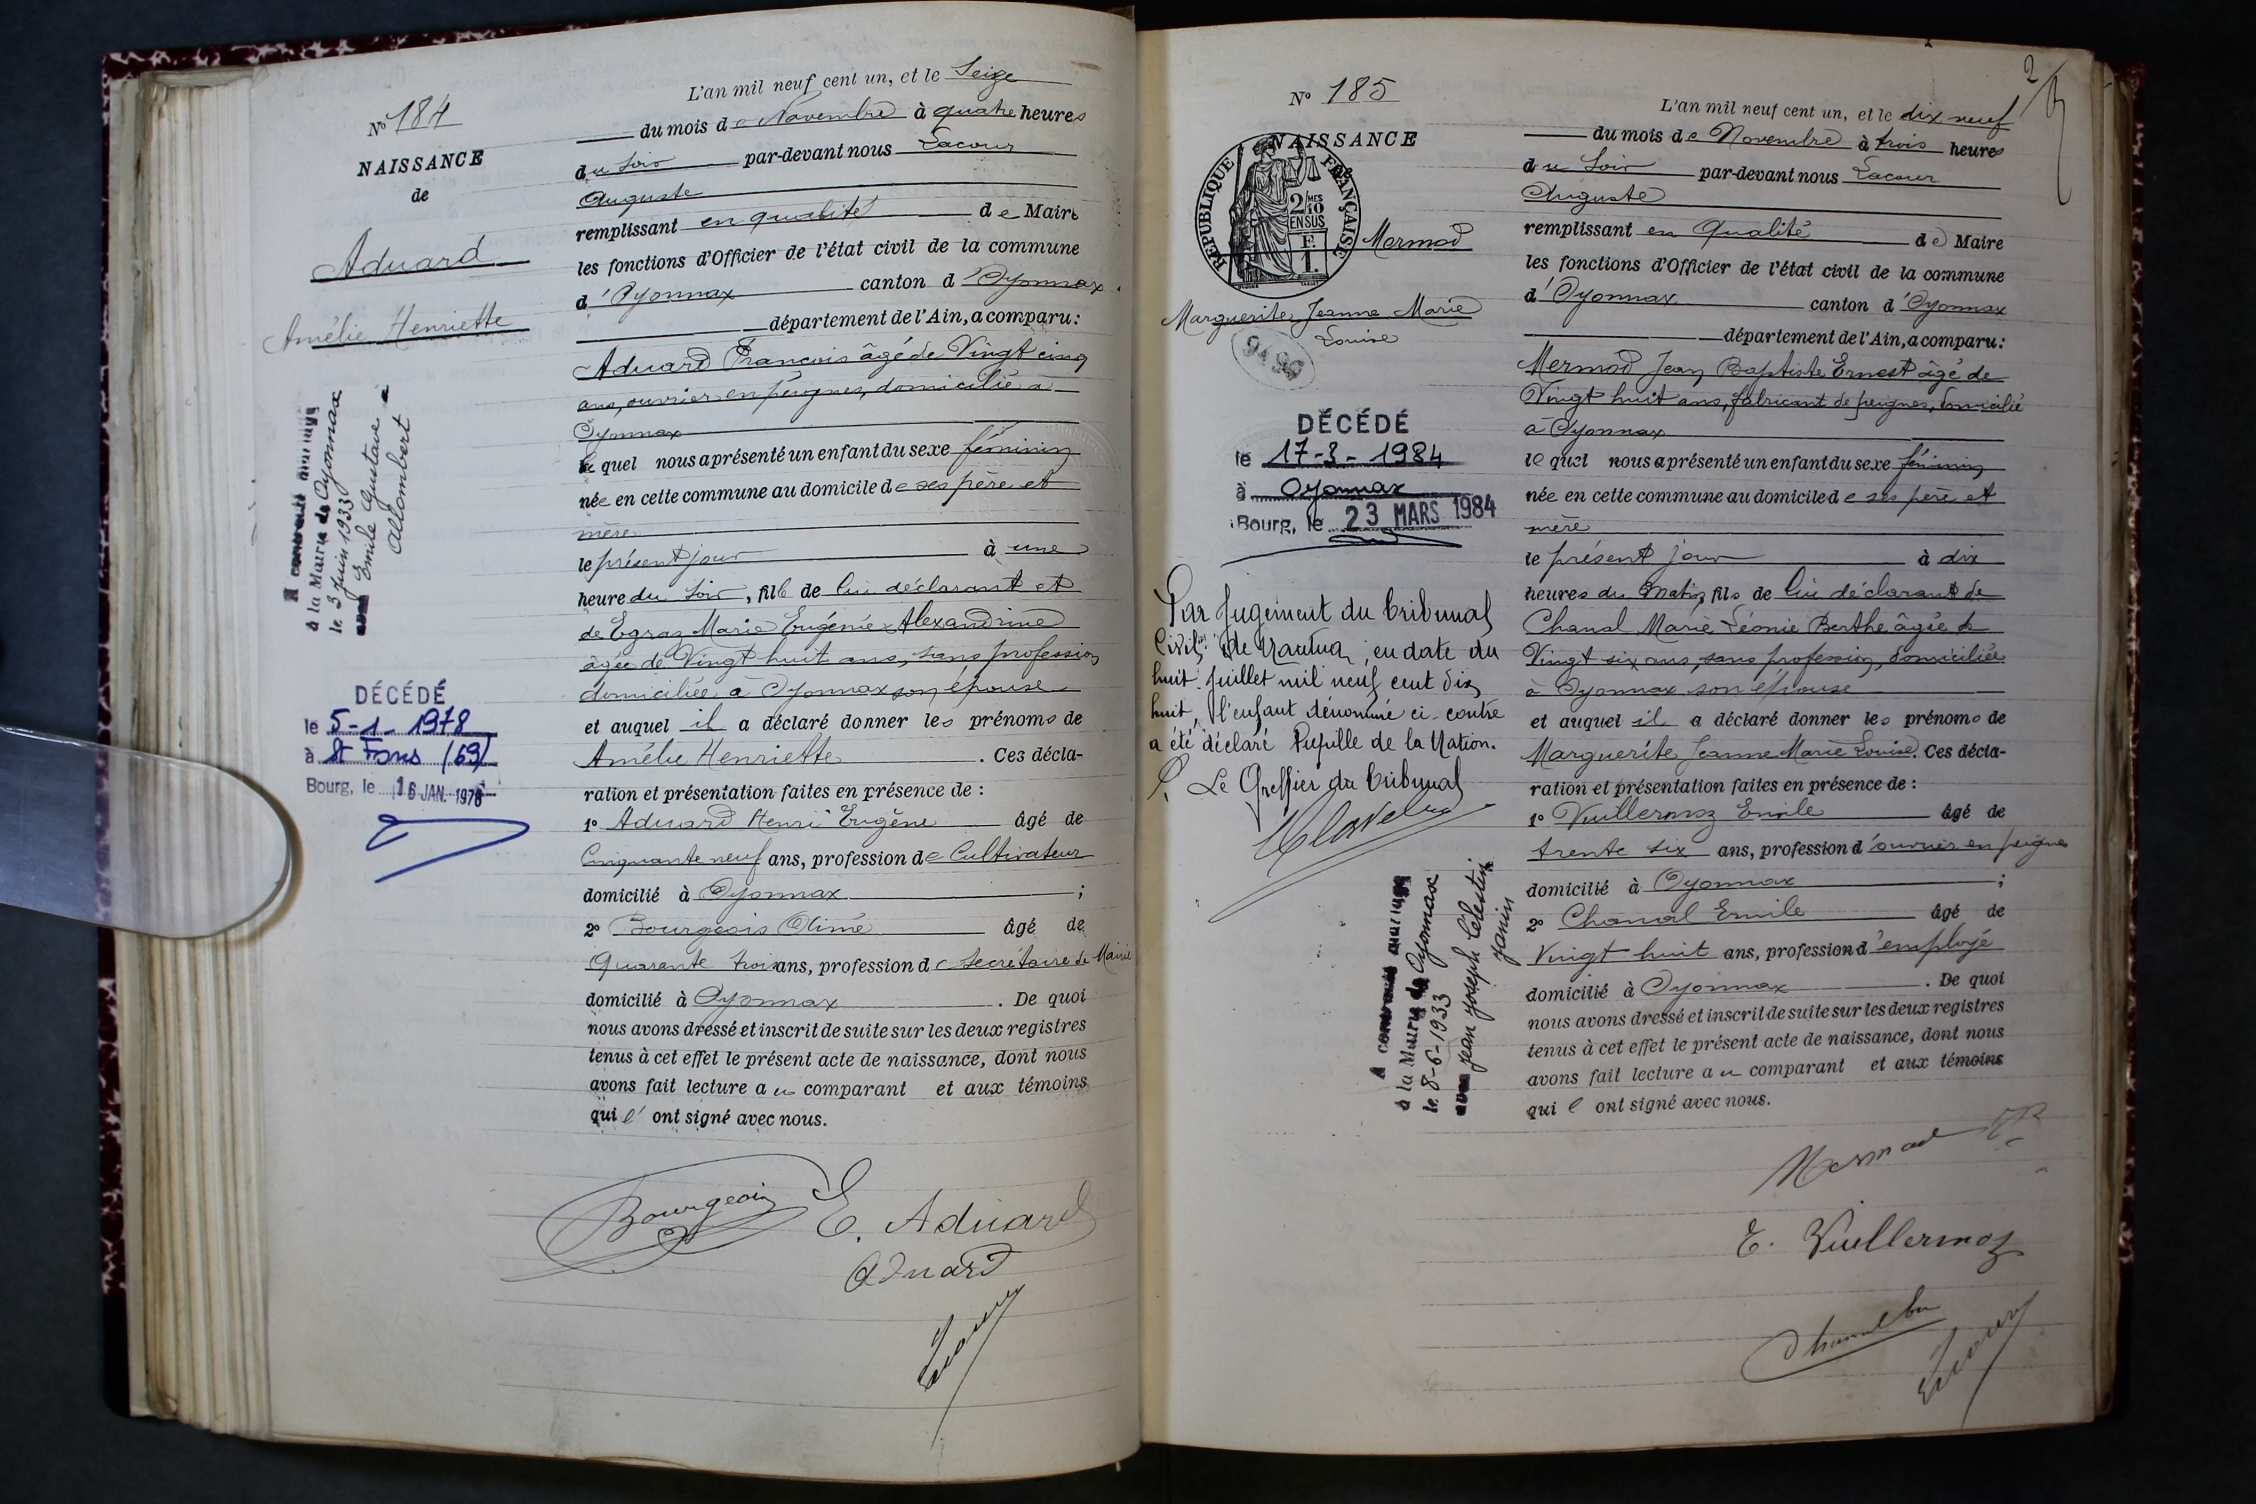 Nº 184
NAISSANCE
de
Aduard
Amélie Henriette
A contracté mariage
à la Mairie de Oyonnax
le 3 juin 1933
avec Emile Gustave
Allombert
DÉCÉDÉ
le 5-1-1978
à St Fons (69)
Bourg, le 16 JAN. 1978
L'an mil neuf cent un, et le Seize
du mois de Novembre à quatre heures
du soir par-devant nous Lacour
Auguste
remplissant en qualité de Maire
les fonctions d'Officier de l'état civil de la commune
d'Oyonnax canton d'Oyonnax
département de l'Ain, a comparu:
Aduard François âgé de Vingt cinq
ans, ouvrier en peignes, domicilié à
Oyonnax
lequel nous a présenté un enfant du sexe féminin
née en cette commune au domicile de ses père et
mère
le présent jour à une
heure du soir, fille de lui déclarant et
de Egraz Marie Eugénie Alexandrine
âgée de Vingt huit ans, sans profession
domiciliée à Oyonnax son épouse
et auquel il a déclaré donner les prénoms de
Amélie Henriette. Ces décla-
ration et présentation faites en présence de :
1º Aduard Henri Eugène âgé de
Cinquante neuf ans, profession de Cultivateur
domicilié à Oyonnax ;
2º Bourgeois Aimé âgé de
Quarante trois ans, profession de Secrétaire de Mairie
domicilié à Oyonnax. De quoi
nous avons dressé et inscrit de suite sur les deux registres
tenus à cet effet le présent acte de naissance, dont nous
avons fait lecture au comparant et aux témoins
qui l'ont signé avec nous.
Bourgeois E. Aduard
Aduard
Lacour
2
Nº 185
NAISSANCE
RÉPUBLIQUE FRANÇAISE
2/10 MES
EN SUS
F.
1.
Mermod
Marguerite Jeanne Marie
Louise
DÉCÉDÉ
le 17-3-1984
à Oyonnax
Bourg, le 23 MARS 1984
Par jugement du tribunal
Civil de Nantua, en date du
huit juillet mil neuf cent dix
huit, l'enfant dénommé ci-contre
a été déclaré Pupille de la Nation.
P. Le Greffier du tribunal
A contracté mariage
à la Mairie de Oyonnax
le 8-6-1933
avec Jean Joseph Célestin
Janin
L'an mil neuf cent un, et le dix neuf
du mois de Novembre à trois heures
du Soir par-devant nous Lacour
Auguste
remplissant en Qualité de Maire
les fonctions d'Officier de l'état civil de la commune
d'Oyonnax canton d'Oyonnax
département de l'Ain, a comparu:
Mermod Jean Baptiste Ernest âgé de
Vingt huit ans, fabricant de peignes, domicilié
à Oyonnax
lequel nous a présenté un enfant du sexe féminin
née en cette commune au domicile de ses père et
mère
le présent jour à dix
heures du Matin, fils de lui déclarant de
Chanal Marie Léonie Berthe âgée de
Vingt six ans, sans profession, domiciliée
à Oyonnax son épouse
et auquel il a déclaré donner les prénoms de
Marguerite Jeanne Marie Louise. Ces décla-
ration et présentation faites en présence de :
1º Vuillermoz Emile âgé de
trente six ans, profession d'ouvrier en peignes
domicilié à Oyonnax ;
2º Chanal Emile âgé de
Vingt huit ans, profession d'employé
domicilié à Oyonnax. De quoi
nous avons dressé et inscrit de suite sur les deux registres
tenus à cet effet le présent acte de naissance, dont nous
avons fait lecture au comparant et aux témoins
qui l ont signé avec nous.
Mermod
E. Vuillermoz
Lacour